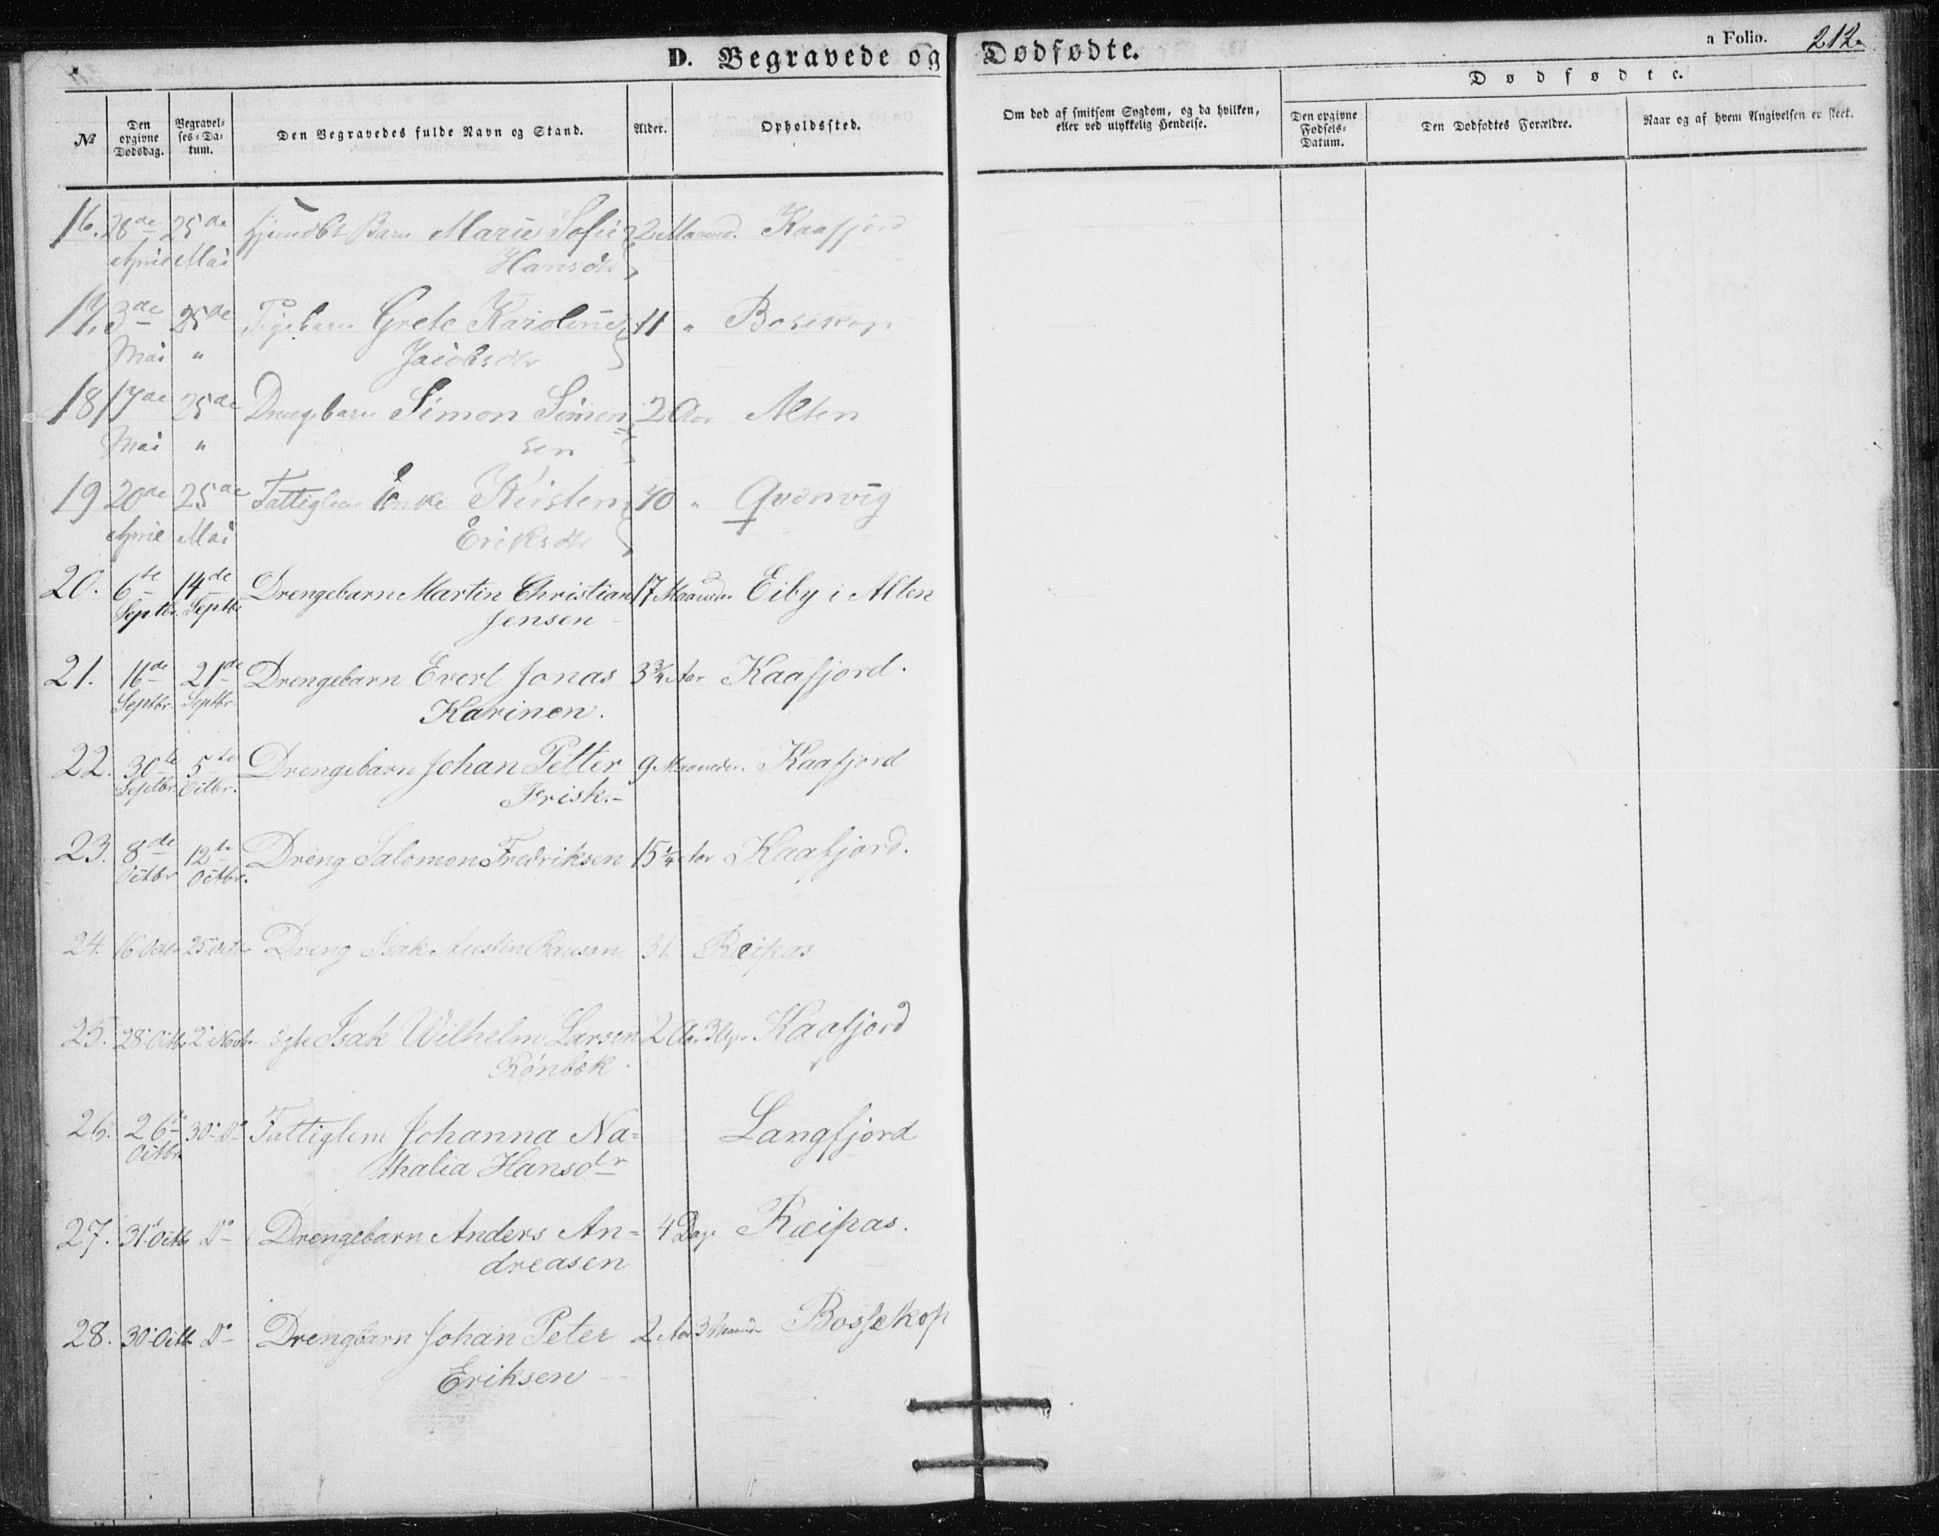 D. Begravede og Dødfødte.
a Folio. 212.
№
Den opgivne Dødsdag.
Begravelses-Datum.
Den Begravedes fulde Navn og Stand.
Alder.
Opholdssted.
Om død af smitsom Sygdom, og da hvilken, eller ved ulykkelig Hendelse.
Dødfødte.
Den opgivne Fødsels-Datum.
Den Dødfødtes Forældre.
Naar og af hvem Angivelsen er skeet.
16. 28de 25de Hjemdbt Barn Marie Sofie 2 Maaned. Kaafjord
April Mai Hansdr
17. 3de 25de Pigebarn Grete Karoline 11 " Bosekop
Mai " Jacobsdr
18 17de 25de Drengebarn Simon Simon 2 Aar Alten
Mai " sen
19 20de 25de Fattiglem Enke Kirsten 70 " Qvænvig
April Mai Eriksdr
20. 6te 14de Drengebarn Martin Christian 17 Maaneder Eiby i Alten
Septbr. Septbr Jensen
21. 16de 21de Drengebarn Evert Jonas 3¾ Aar Kaafjord.
Septbr. Septbr. Karinen.
22. 30te 5te Drengebarn Johan Petter 9 Maaneder. Kaafjord
Septbr. Octbr. Frisk.
23. 8de 12te Dreng Salomon Fredriksen 15¼ Aar Kaafjord.
Octbr Octbr.
24. 16 Octbr 25 Octbr Dreng Isak Austin 31. Ræipas
25. 28 Octbr 2 Novbr. ægte Isak Wilhelm Larsen 2 Aar 3 Kaafjord
Rønbek.
26. 26 30 Do Fattiglem Johanna Na=
Octbr. thalia Hansdr Langfjord
27. 31 Octbr Do Drengebarn Anders An= 4 Dage Ræipas.
dreasen
28. 30 Octbr Do Drengbarn Johan Peter 2 Aar 3 Maaneder Bossekop
Eriksen